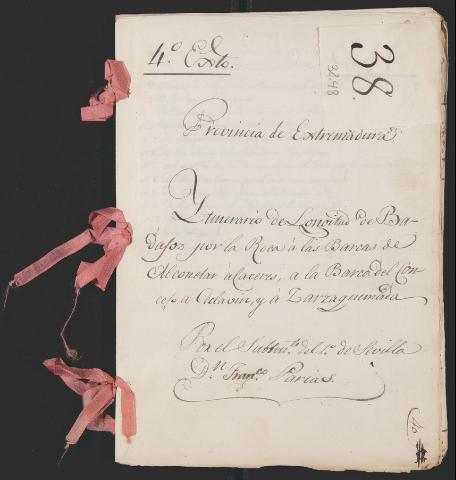 4.º Exto.
38
3248
Provincia de Extremadura
Ytinerario de Longitud de Ba-
dajoz por la Roca à las Barcas de
Alconetar à Caceres, a la Barca del Con-
cejo, a Ceclavin, y à Zarzaquemada
Por el Subten.te del 1.º de Sevilla
D.n Fran.co Parias.
40